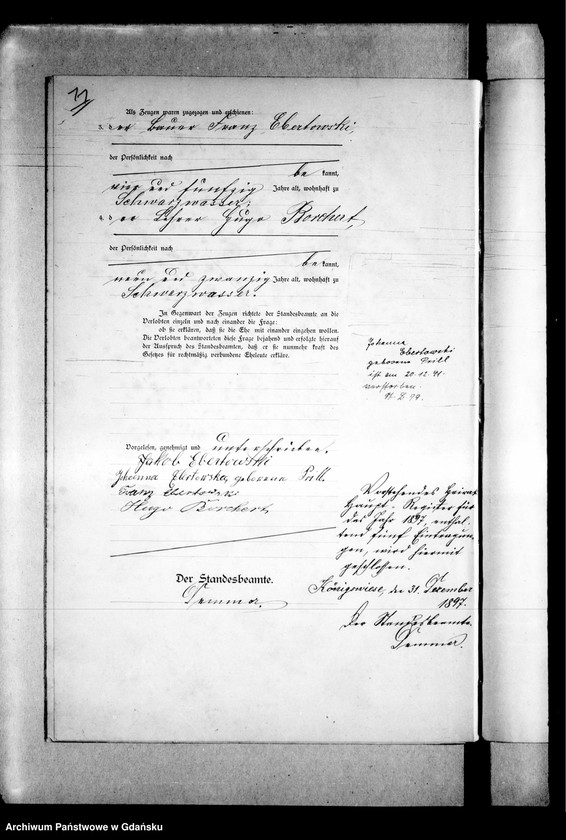 Als Zeugen waren zugezogen und erschienen:
3. der Bauer Franz Ebertowski,
der Persönlichkeit nach
bekannt,
vier und fünfzig Jahre alt, wohnhaft zu
Schwarzwasser;
4. der Lehrer Hugo Borchert,
der Persönlichkeit nach
bekannt,
neun und zwanzig Jahre alt, wohnhaft zu
Schwarzwasser.
In Gegenwart der Zeugen richtete der Standesbeamte an die
Verlobten einzeln und nach einander die Frage:
ob sie erklären, daß sie die Ehe mit einander eingehen wollen.
Die Verlobten beantworteten diese Frage bejahend und erfolgte hierauf
der Ausspruch des Standesbeamten, daß er sie nunmehr kraft des
Gesetzes für rechtmäßig verbundene Eheleute erkläre.
Johanna
Ebertowski
geborene Prill
ist am 20.12.41.
verstorben.
Vorgelesen, genehmigt und unterschrieben.
Jakob Ebertowski
Johanna Ebertowska, geborena Prill
Franz Ebertowski
Hugo Borchert
Der Standesbeamte.
Vorstehendes Heirats
Haupt-Register für
das Jahr 1897, enthal-
tend fünf Eintragun-
gen, wird hiermit
geschlossen.
Königswiese, den 31. Dezember
1897.
Der Standesbeamte.
Archiwum Państwowe w Gdańsku